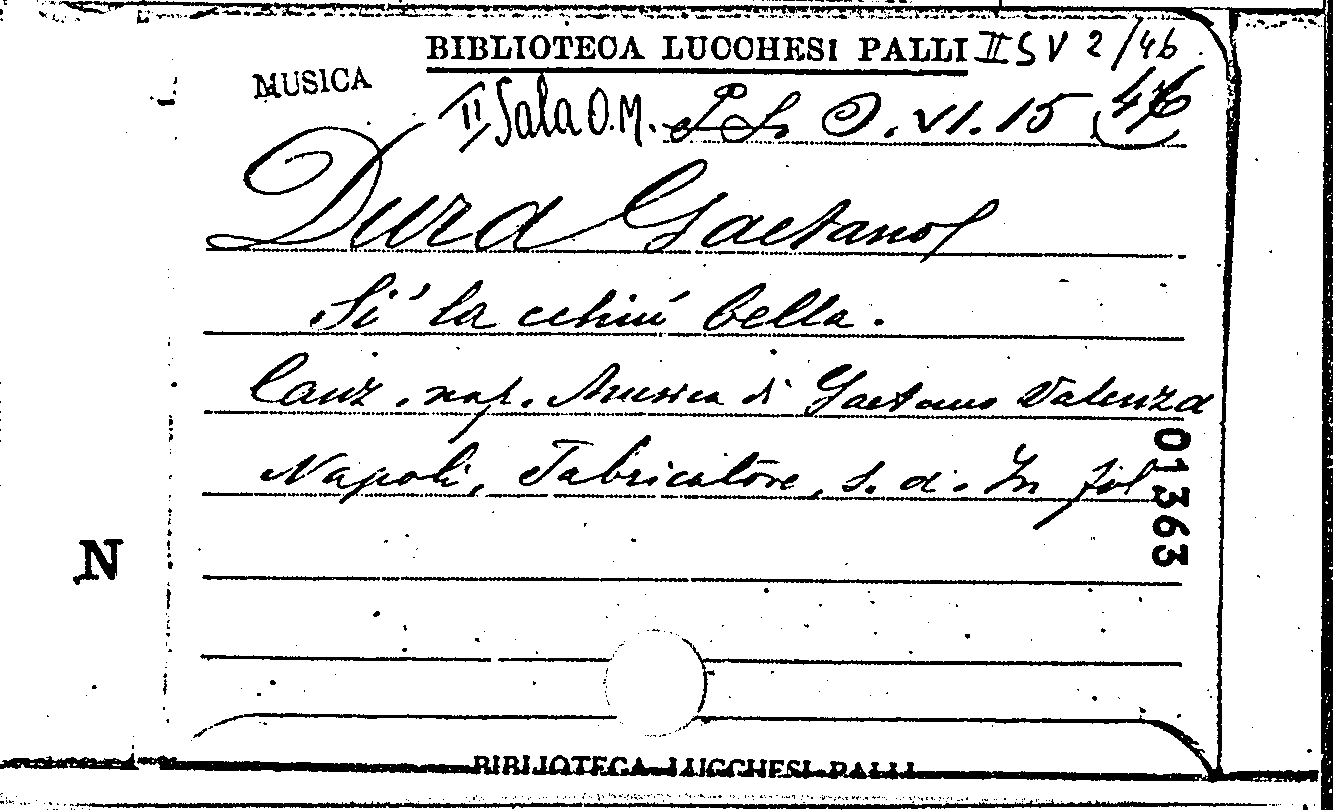 BIBLIOTECA LUCCHESI PALLI II S V 2/46
MUSICA
II Sala O.M. P. S. O. VI. 15 46
Dura Gaetano
Si' la cchiú bella.
Canz. nap. Musica di Gaetano Valenza
Napoli, Fabricatore, s. d. In fol
01363
N
BIBLIOTECA LUCCHESI PALLI